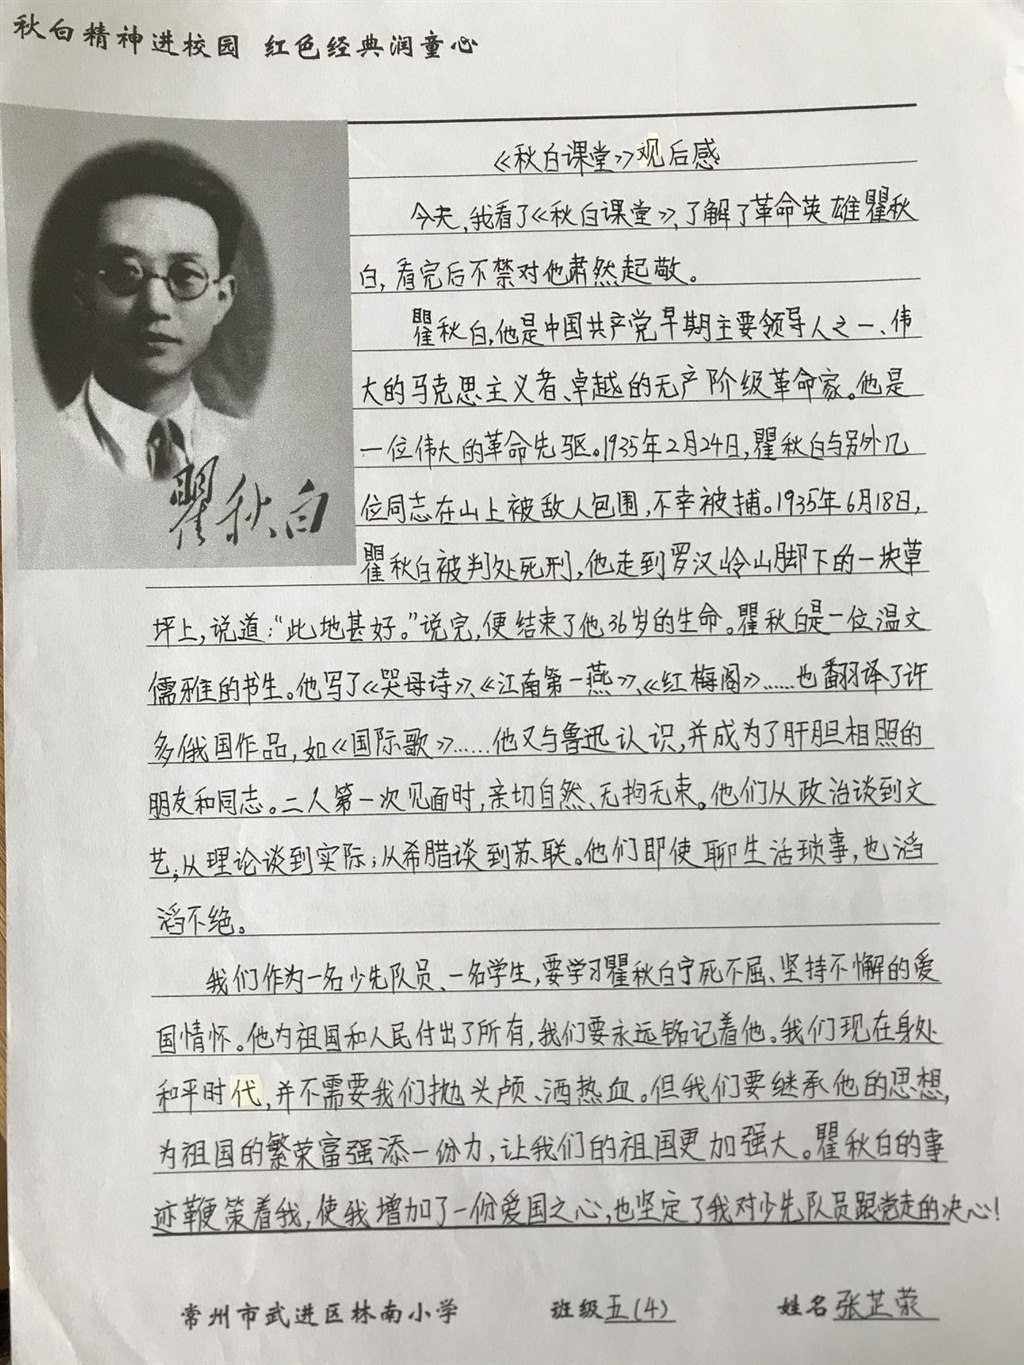 秋白精神进校园 红色经典润童心
《秋白课堂》观后感
今天,我看了《秋白课堂》,了解了革命英雄瞿秋
白,看完后不禁对他肃然起敬。
瞿秋白,他是中国共产党早期主要领导人之一、伟
大的马克思主义者、卓越的无产阶级革命家。他是
一位伟大的革命先驱。1935年2月24日,瞿秋白与另外几
位同志在山上被敌人包围,不幸被捕。1935年6月18日,
瞿秋白被判处死刑,他走到罗汉岭山脚下的一块草
坪上,说道:“此地甚好。”说完,便结束了他36岁的生命。瞿秋白是一位温文
儒雅的书生。他写了《哭母诗》、《江南第一燕》、《红梅阁》……也翻译了许
多俄国作品,如《国际歌》……他又与鲁迅认识,并成为了肝胆相照的
朋友和同志。二人第一次见面时,亲切自然、无拘无束。他们从政治谈到文
艺;从理论谈到实际;从希腊谈到苏联。他们即使聊生活琐事,也滔
滔不绝。
我们作为一名少先队员、一名学生,要学习瞿秋白宁死不屈、坚持不懈的爱
国情怀。他为祖国和人民付出了所有,我们要永远铭记着他。我们现在身处
和平时代,并不需要我们抛头颅、洒热血。但我们要继承他的思想,
为祖国的繁荣富强添一份力,让我们的祖国更加强大。瞿秋白的事
迹鞭策着我,使我增加了一份爱国之心,也坚定了我对少先队员跟党走的决心!
瞿秋白
常州市武进区林南小学 班级五(4) 姓名张芷萦